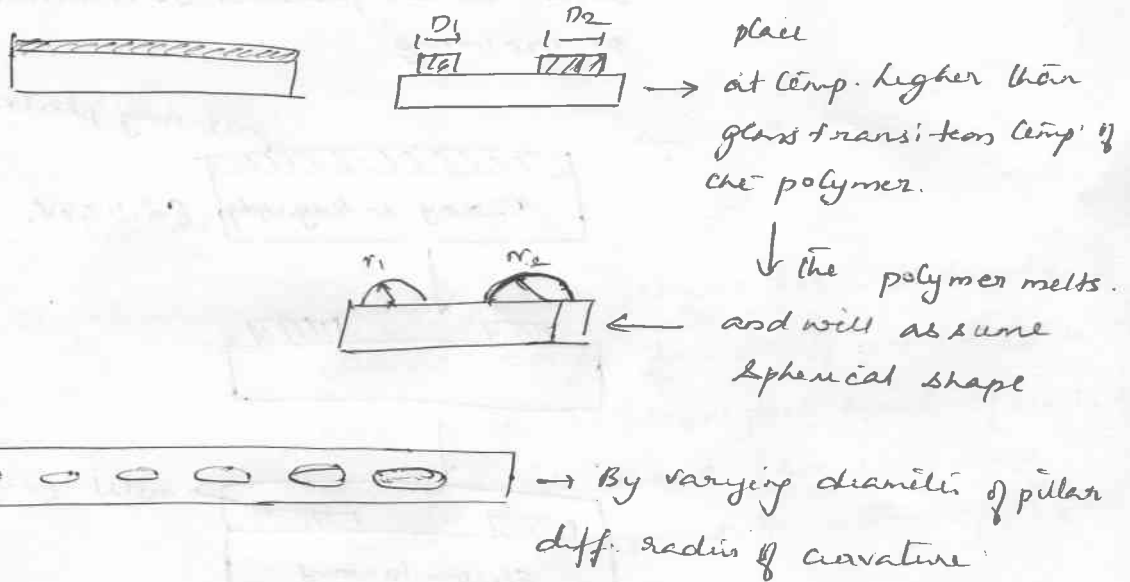 D1 D2
place
→ at temp. higher than
glass transition temp. of
the polymer.
↓ the polymer melts.
r1 r2
← and will assume
spherical shape
→ By varying diameter of pillar
diff. radius of curvature